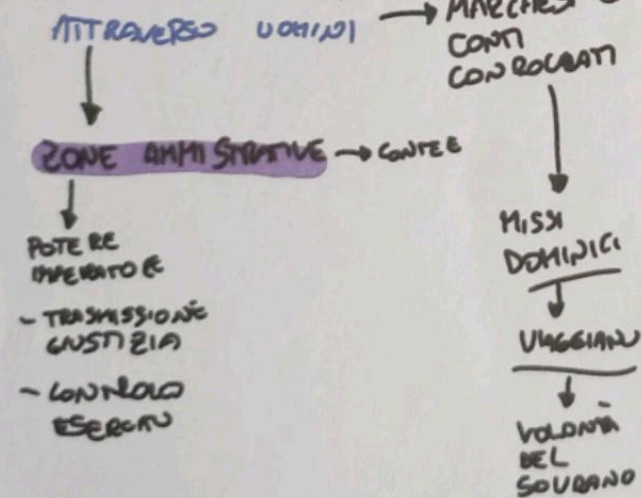 ATTRAVERSO UOMINI →
MARCHESI
CONTI
CONTROLLATI
ZONE AMMISTRATIVE → CONTEE
POTERE
IMPERATORE
- TRASMISSIONE
GIUSTIZIA
- CONTROLLO
ESERCITO
MISSI
DOMINICI
VIAGGIANO
VOLONTÀ
DEL
SOVRANO